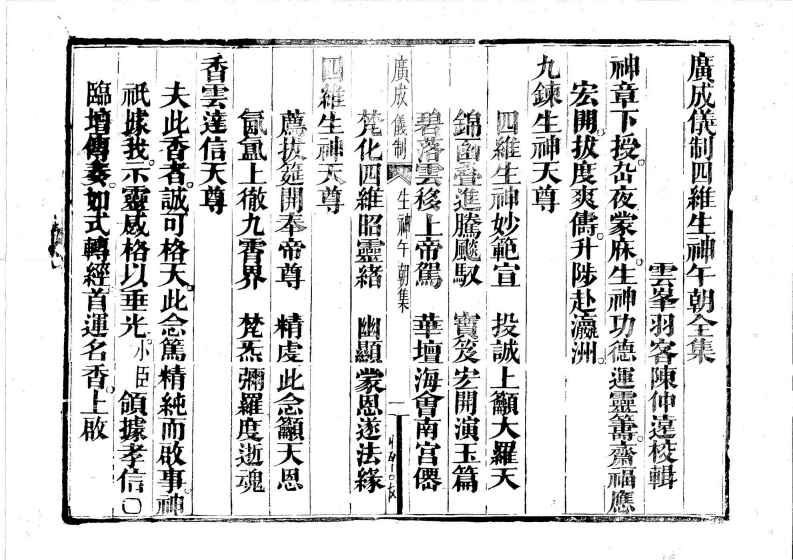 廣成儀制四維生神午朝全集
雲峯羽客陳仲遠校輯
神章下授岔夜蒙庥。生神功德運靈籌。齋福應
宏開。拔度爽儔。升陟赴瀛洲。
九鍊生神天尊
四維生神妙範宣　投誠上籲大羅天
錦函疊進騰飈馭　寶笈宏開演玉篇
碧落雲移上帝駕　華壇海會南宮僊
廣成儀制　生神午朝集　一
梵化四維昭靈緒　幽顯蒙恩遂法緣
四維生神天尊
薦拔筵開奉帝尊　精虔此念籲天恩
氤氳上徹九霄界　梵炁彌羅度逝魂
香雲達信天尊
夫此香者。誠可格天。此念篤精純而啟事。神
祇據我。示靈感格以垂光。小臣領據孝信〇
臨壇傳奏。如式轉經。首運名香上啟